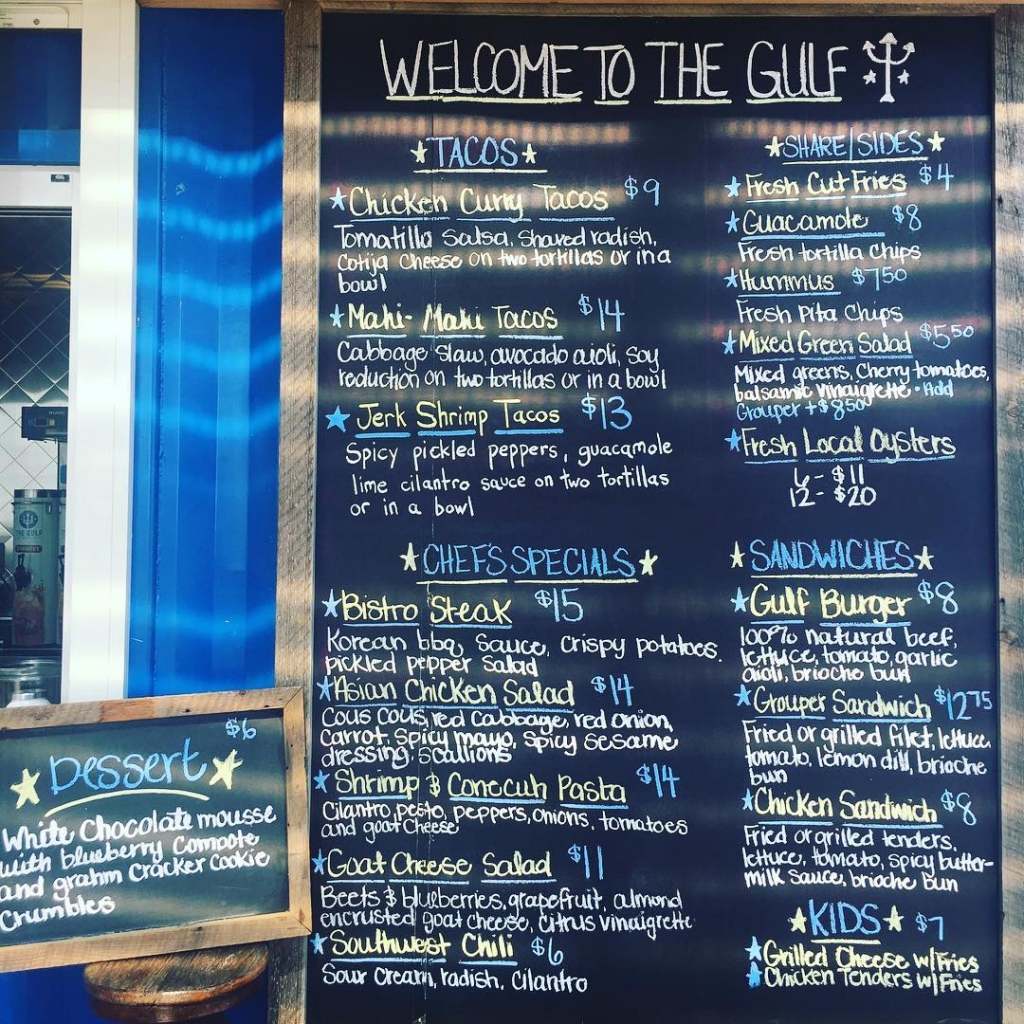 WELCOME TO THE GULF
TACOS
Chicken Curry Tacos $9
Tomatilla salsa, shaved radish,
cotija cheese on two tortillas or in a
bowl
Mahi-Mahi Tacos $14
Cabbage slaw, avocado aioli, soy
reduction on two tortillas or in a bowl
Jerk Shrimp Tacos $13
Spicy pickled peppers, guacamole
lime cilantro sauce on two tortillas
or in a bowl
SHARE/SIDES
Fresh Cut Fries $4
Guacamole $8
Fresh tortilla chips
Hummus $750
Fresh Pita Chips
Mixed Green Salad $5.50
Mixed greens, Cherry tomatoes,
balsamic vinaigrette • Add
Grouper +$8.50
Fresh Local Oysters
6- $11
12- $20
CHEF'S SPECIALS
Bistro Steak $15
Korean bbq, sauce, crispy potatoes.
pickled pepper salad
Asian Chicken Salad $14
Cous cous, red cabbage, red onion,
carrot, spicy mayo, spicy sesame
dressing, scallions
Shrimp & Conecuh Pasta $14
Cilantro, pesto, peppers, onions, tomatoes
and goat cheese
Goat Cheese Salad $11
Beets & blueberries, grapefruit, almond
encrusted goat cheese, citrus vinaigrette
Southwest Chili $6
Sour cream, radish, cilantro
SANDWICHES
Gulf Burger $8
100% natural beef,
lettuce, tomato, garlic
aioli, brioche bun
Grouper Sandwich $12.75
Fried or grilled filet, lettuce,
tomato, lemon dill, brioche
bun
Chicken Sandwich $8
Fried or grilled tenders,
lettuce, tomato, spicy butter-
milk sauce, brioche bun
KIDS $7
Grilled Cheese w/Fries
Chicken Tenders w/Fries
$6
Dessert
White Chocolate mousse
with blueberry compote
and grahm cracker cookie
crumbles
THE GULF